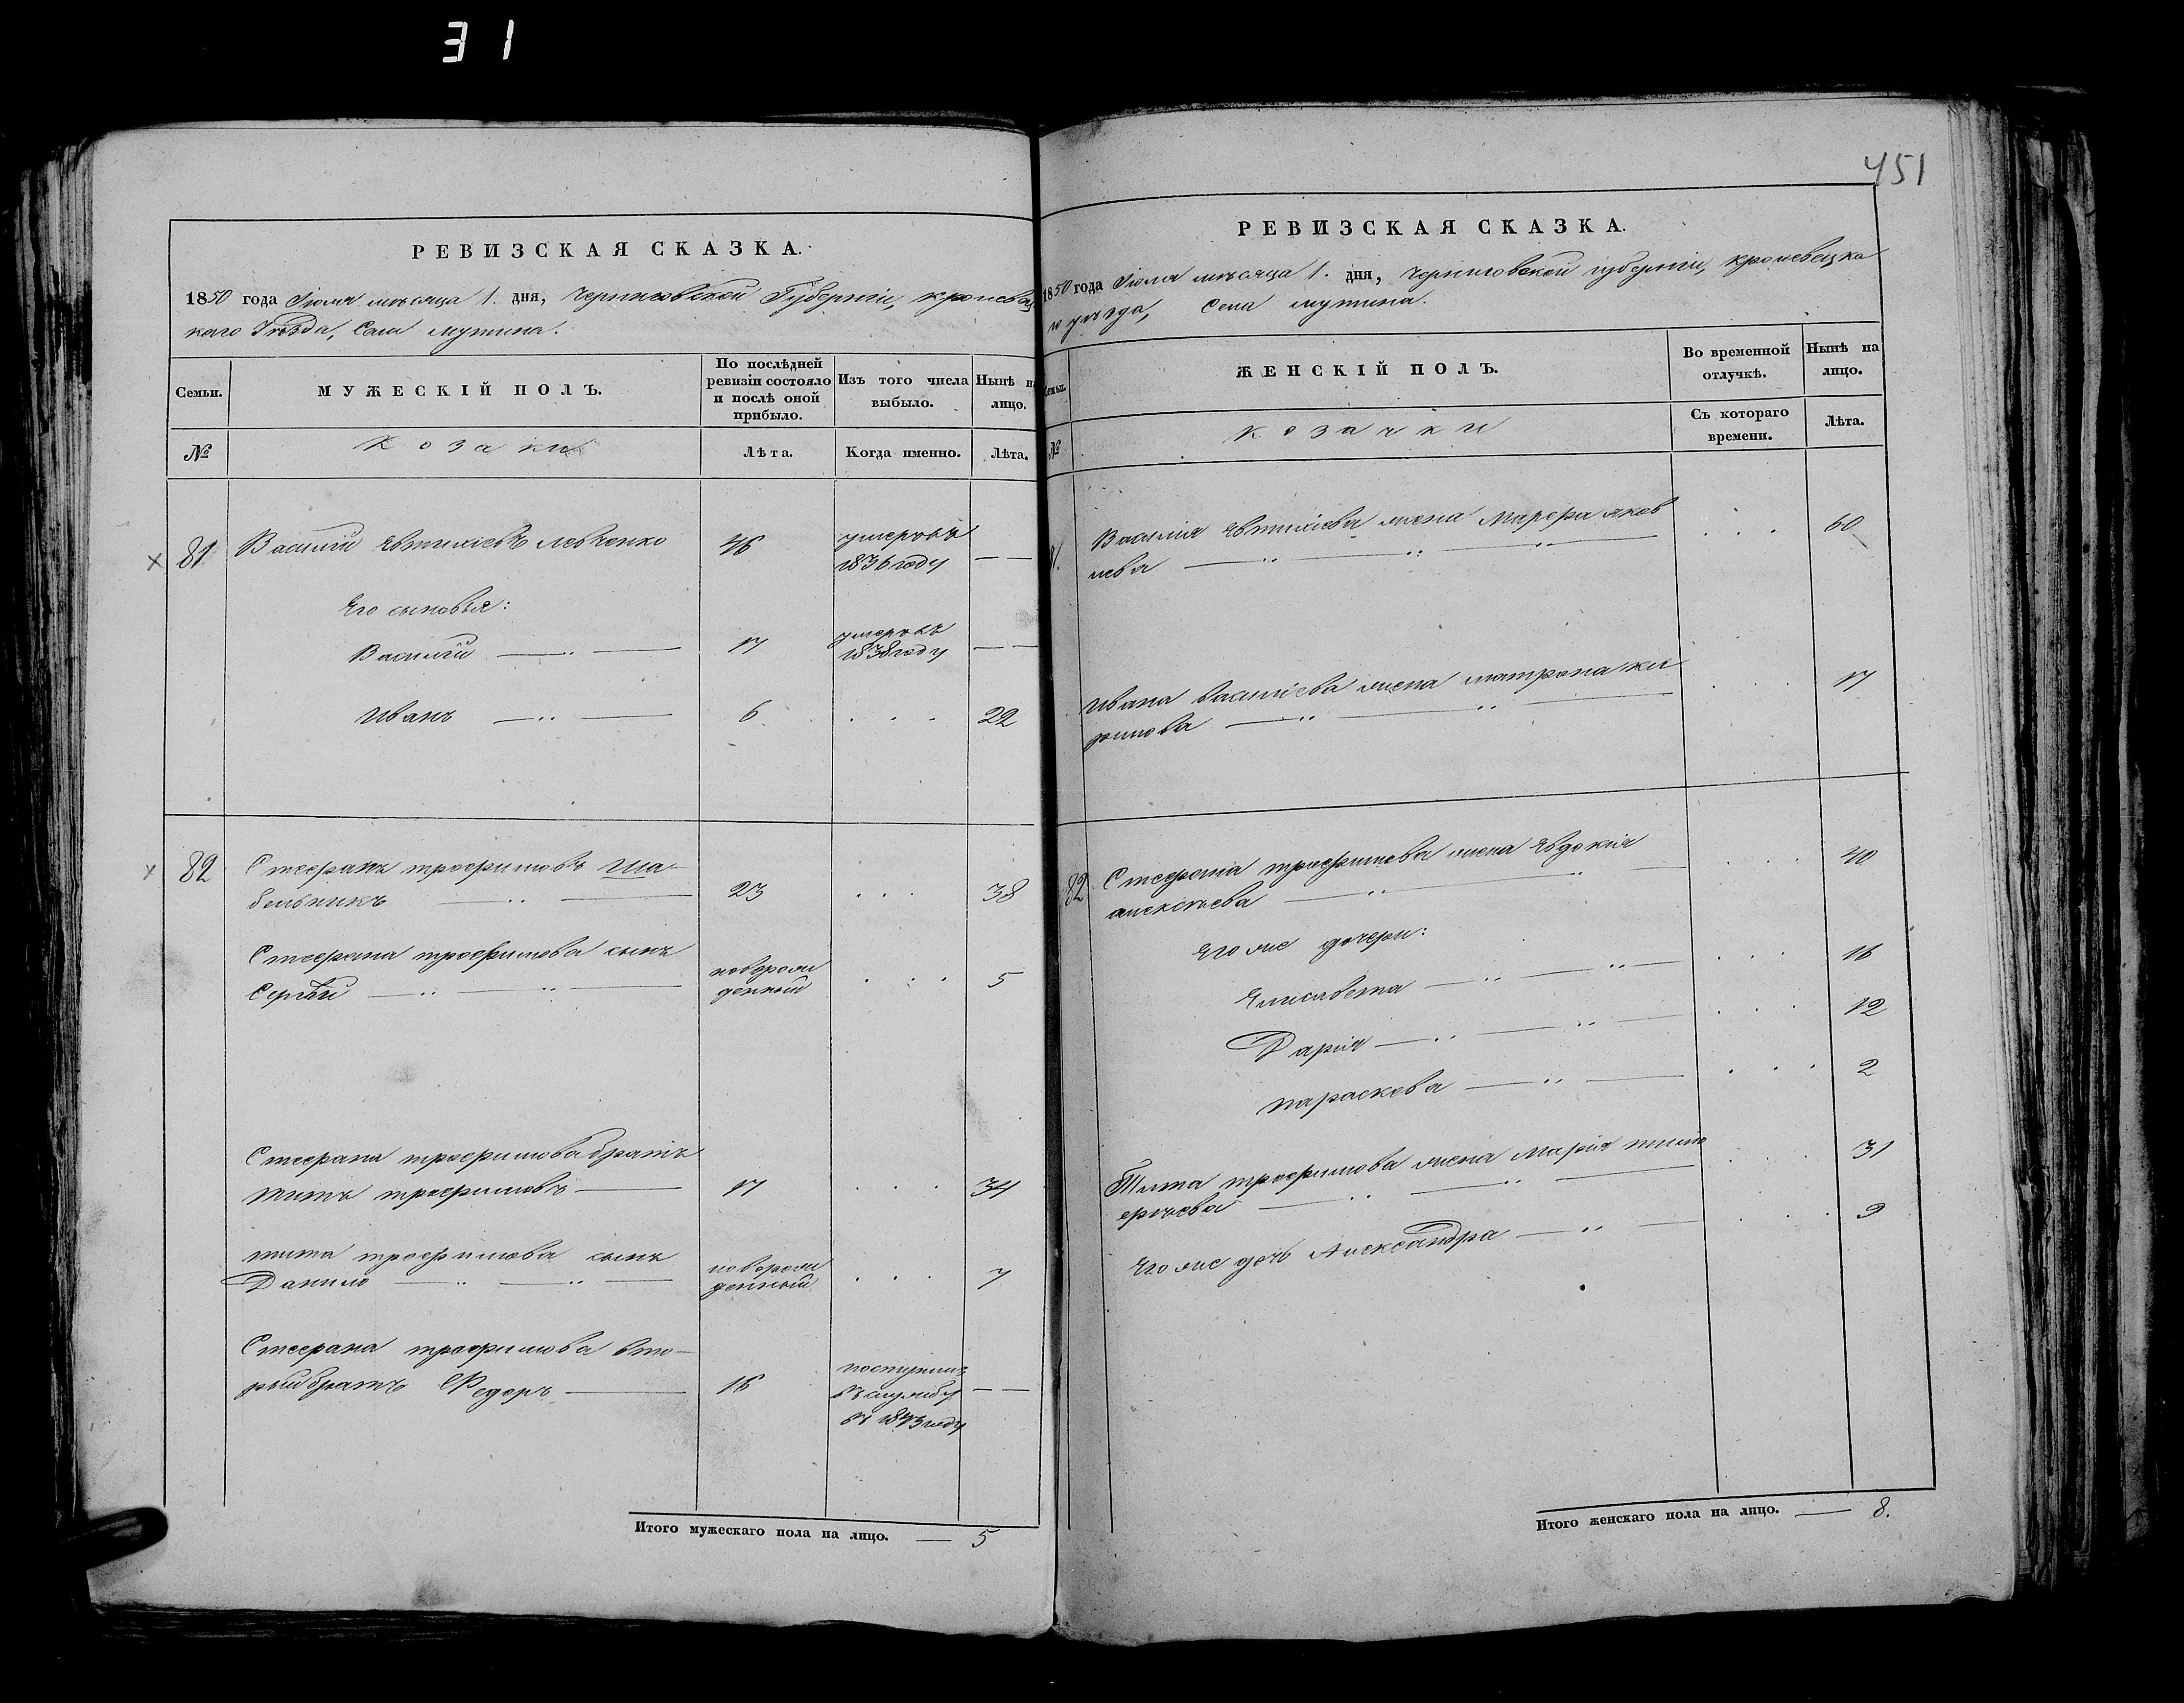 31
РЕВИЗСКАЯ СКАЗКА.
1850 года Іюля мѣсяца 1. дня, Черниговской Губерніи, кролевец
каго Уѣзда, Села мутина.
Семьи.
МУЖЕСКІЙ ПОЛЪ.
По послѣдней
ревизіи состояло
и послѣ оной
прибыло.
Изъ того числа
выбыло.
Нынѣ на
лицо.
№
Козаки
Лѣта.
Когда именно.
Лѣта.
81 Василій Євтихіевъ левченко 46 умеръ въ
1836 году — —
Єго сыновья:
Василій — 17 умеръ въ
1838 году — —
Иванъ — 6. . . . 22
82 Стефанъ трофимовъ ша-
бельникъ — 23 . . . 38
Стефана трофимова сынъ
Сергѣй — новорож
денный . . . 5
Стефана трофимова братъ
титъ трофимовъ — 17 . . . 34
тита трофимова сынъ
Данило — новорож
денный . . . 7
Стефана трофимова вто-
рый братъ Федоръ — 16 поступилъ
въ службу
въ 1843 году — —
Итого мужескаго пола на лицо. — 5
451
РЕВИЗСКАЯ СКАЗКА.
1850 года Іюля мѣсяца 1. дня, Черниговской губерніи, кролевецка
го уѣзда, Села мутина.
Семьи.
ЖЕНСКІЙ ПОЛЪ.
Во временной
отлучкѣ.
Нынѣ на
лицо.
№
Козачки
Съ котораго
времени.
Лѣта.
81. Василія Євтихіева жена Марфа яков
лева — . . . 60
Ивана Василіева жена матрона ки
рилова — . . . 17
82 Стефана трофимова жена Євдокія
алексѣева — . . . 40
Єго же дочери:
Єлисавета — . . . 16
Дарія — . . . 12
параскева — . . . 2
Тита трофимова жена Марія тимо
феѣева — . . . 31
Єго же дочь Александра — . . . 9
Итого женскаго пола на лицо. — 8.